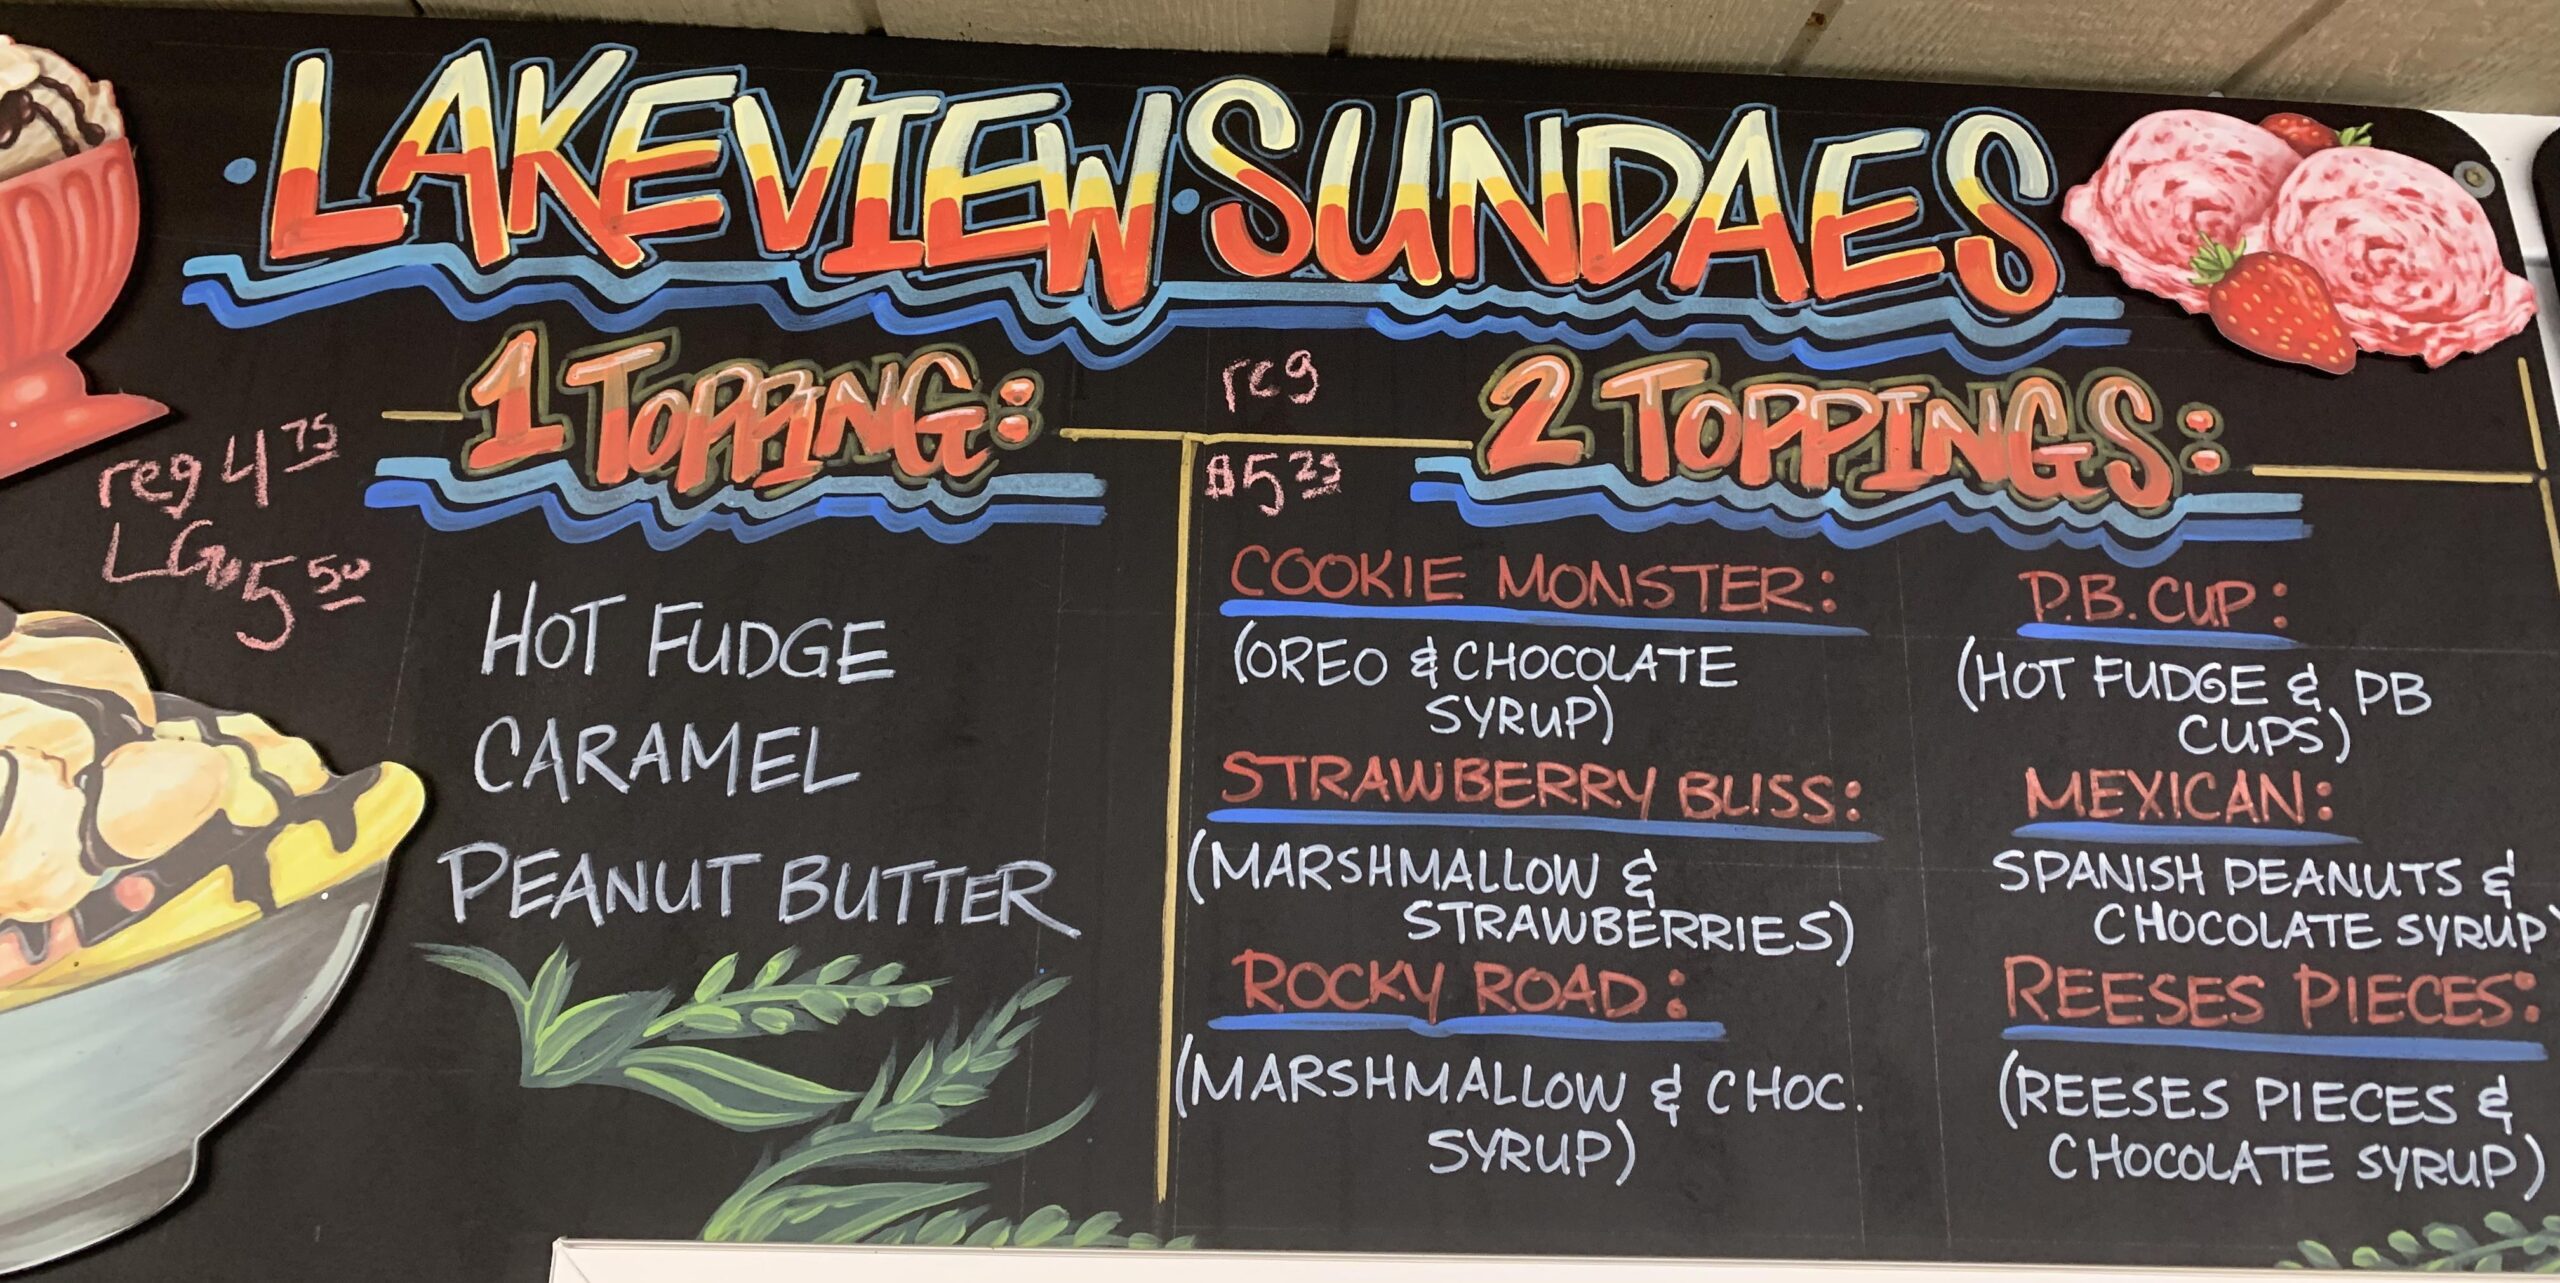 LAKEVIEW SUNDAES
1 TOPPING:
reg 4 75
LG 5 50
HOT FUDGE
CARAMEL
PEANUT BUTTER
reg
$5 25
2 TOPPINGS:
COOKIE MONSTER:
(OREO & CHOCOLATE
SYRUP)
STRAWBERRY BLISS:
(MARSHMALLOW &
STRAWBERRIES)
ROCKY ROAD:
(MARSHMALLOW & CHOC.
SYRUP)
P.B. CUP:
(HOT FUDGE & PB
CUPS)
MEXICAN:
SPANISH PEANUTS &
CHOCOLATE SYRUP)
REESES PIECES:
(REESES PIECES &
CHOCOLATE SYRUP)